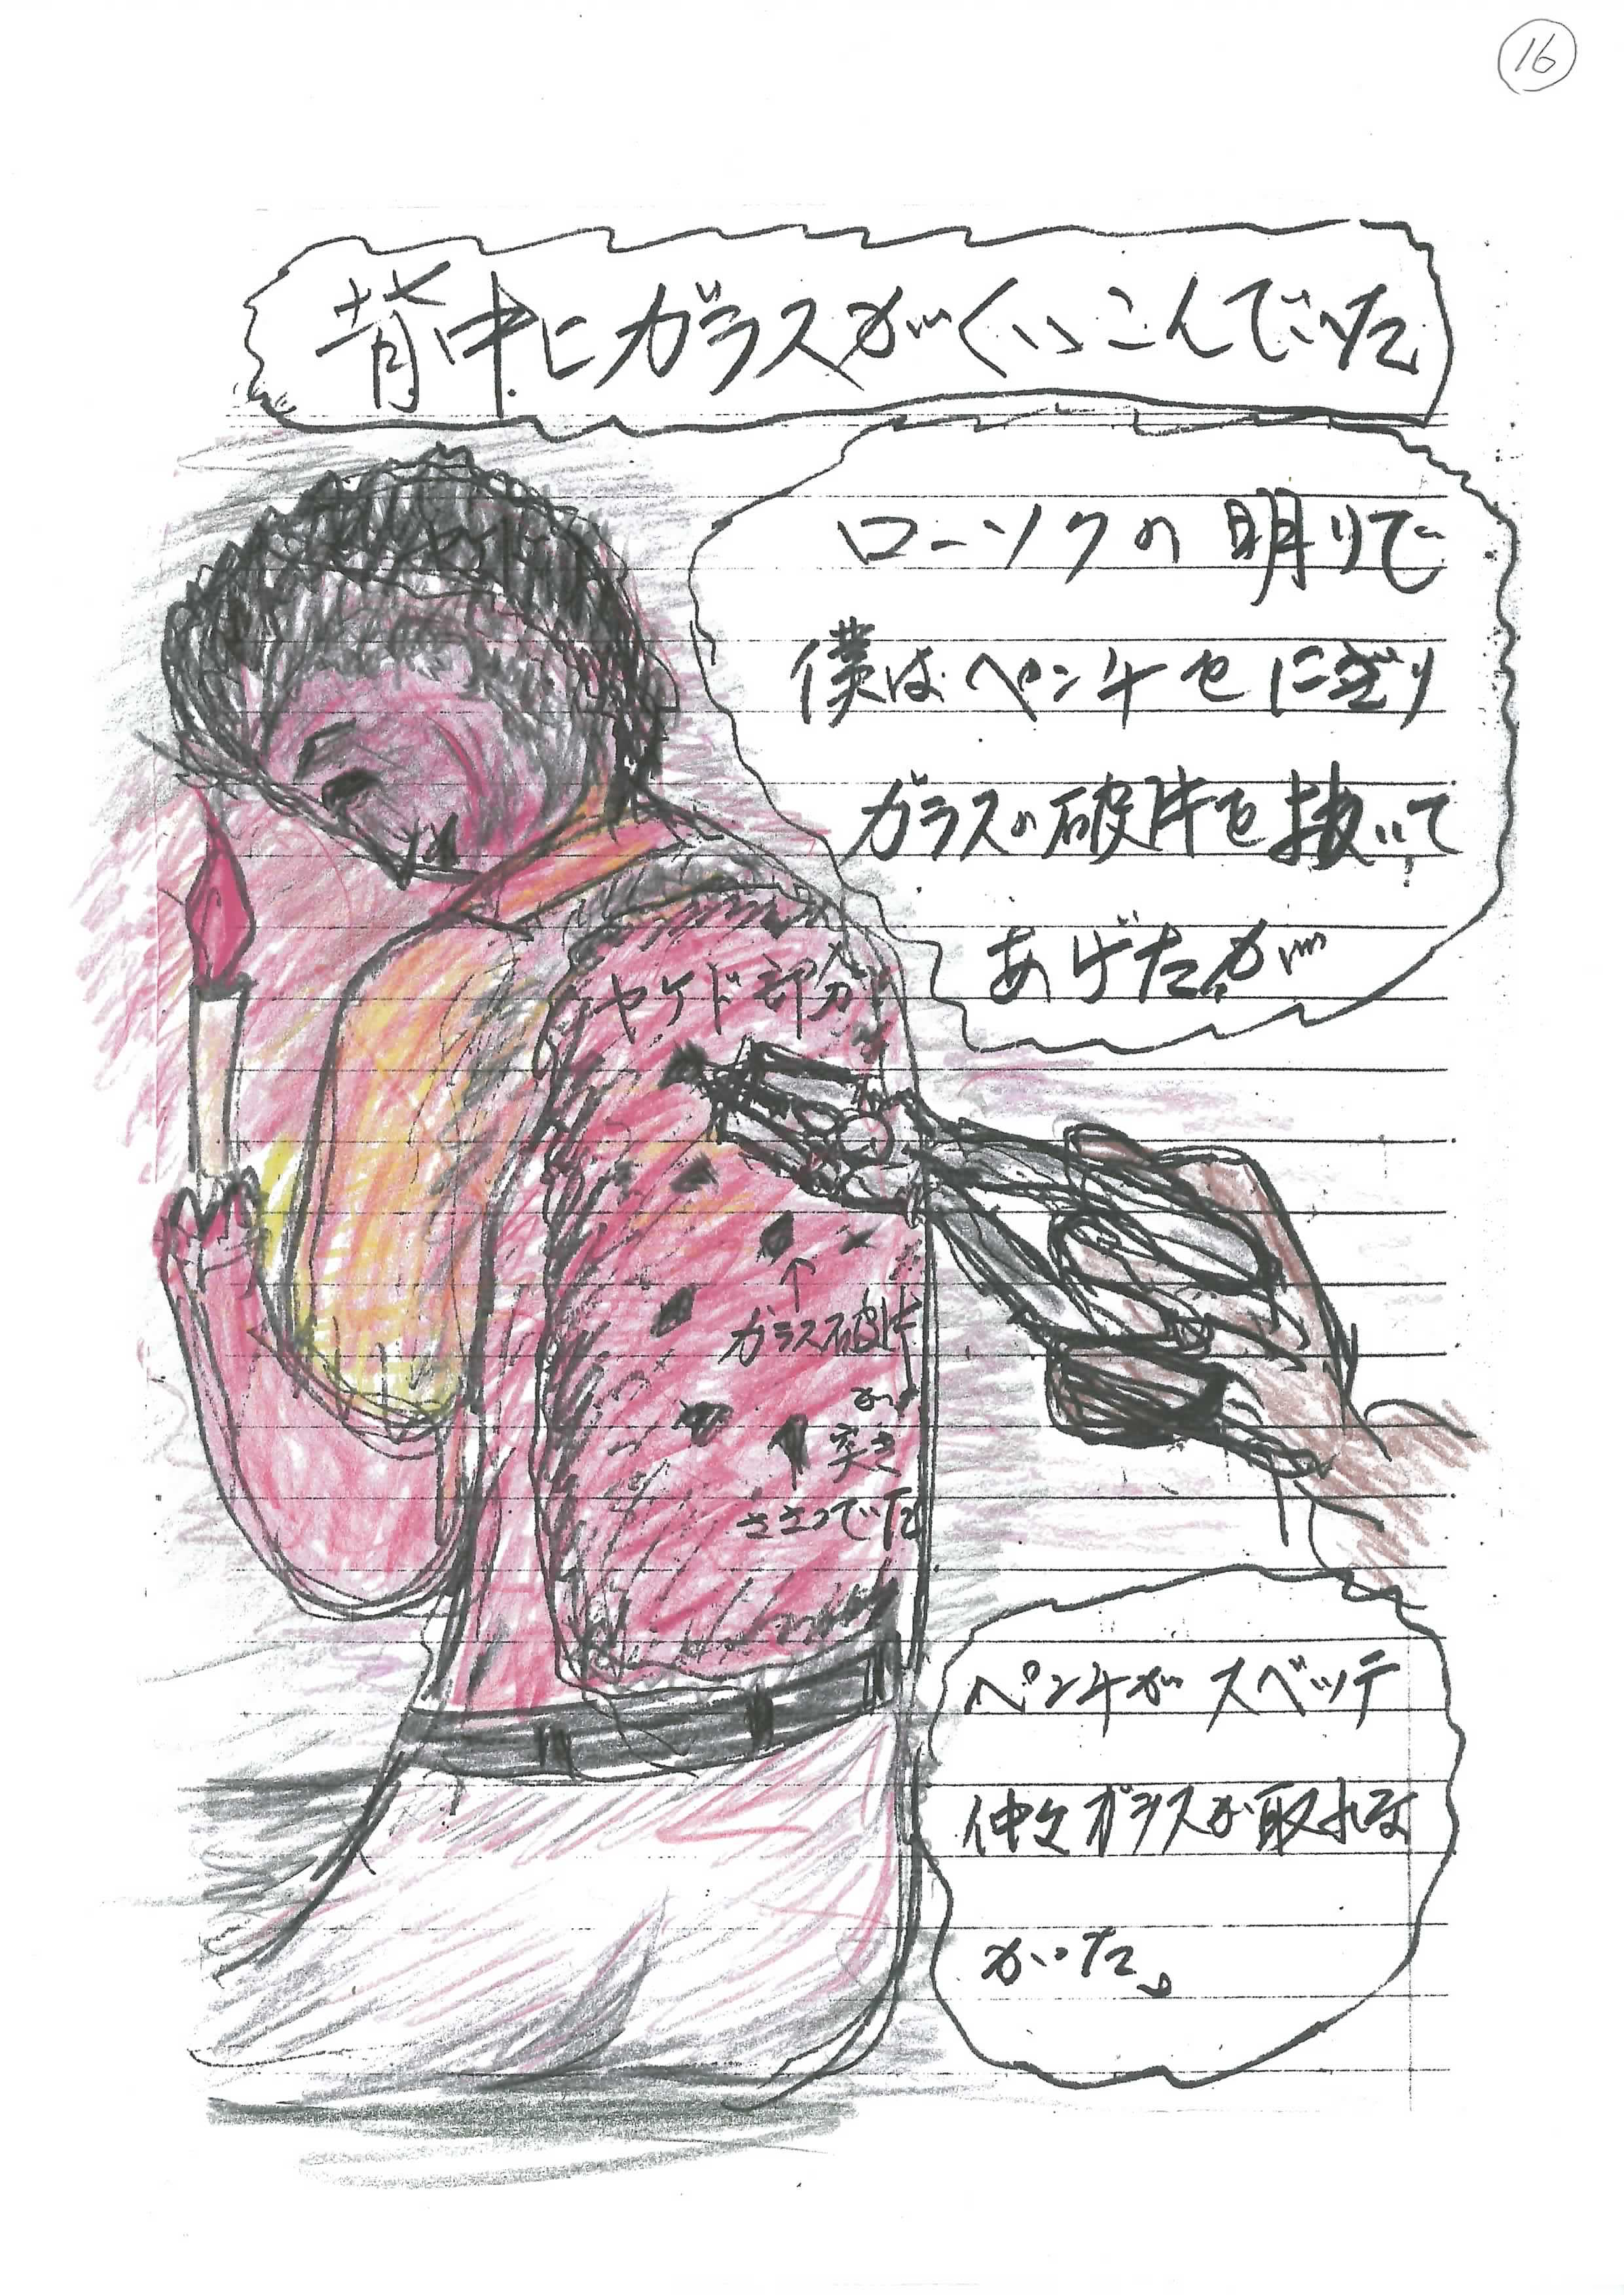 16
背中にガラスがくいこんでいた
ローソクの明りで
僕はペンチをにぎり
ガラスの破片を抜いて
あげたが
ヤケド部分
ガラス破片
が
突き
ささっでいた
ペンチがスベッテ
仲々ガラスが取れな
かった。